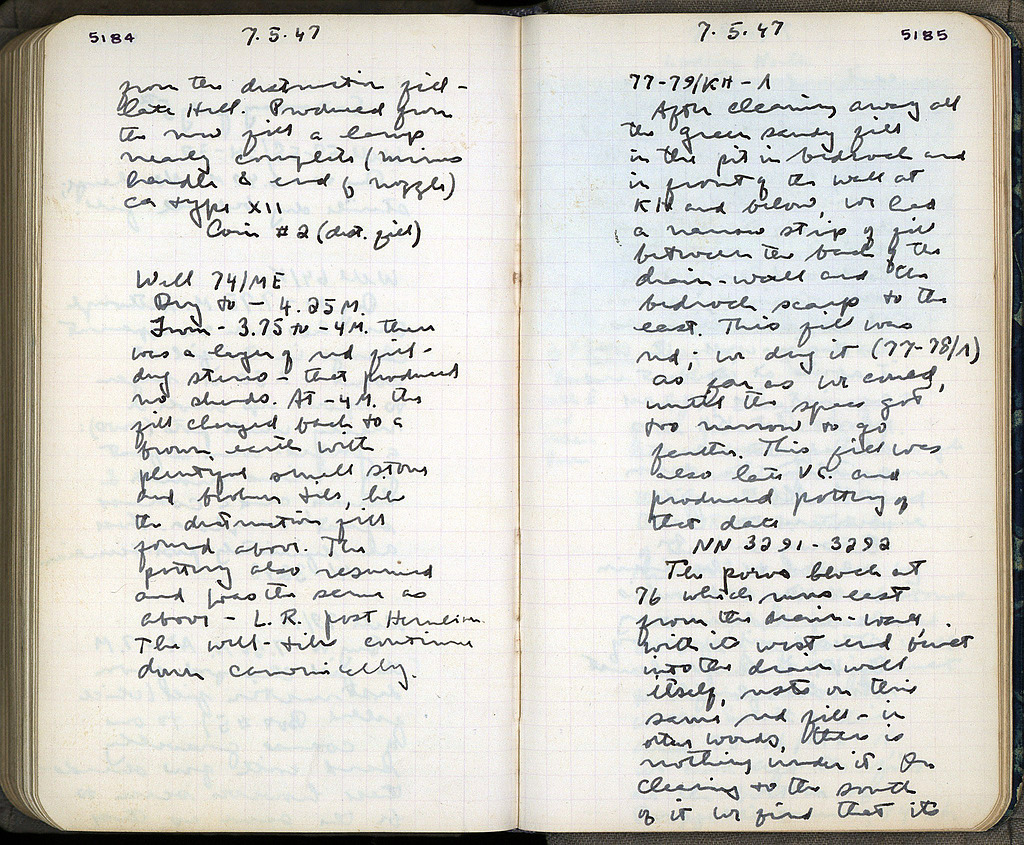 5184
7.5.47
from the destruction fill -
late Hell. Produced from
the new fill a lamp
nearly complete (minus
handle & end of nozzle)
ca type XII
Coin #2 (dest. fill)
Well 74/ME
Dug to - 4.25M.
From - 3.75 to - 4M. there
was a layer of red fill -
dug stereo - that produced
no sherds. At - 4M. the
fill changed back to a
brown earth with
plentiful small stones
and broken tiles, like
the destruction fill
found above. The
pottery also resumed
and was the same as
above - L.R. post Herulian.
The well-tiles continue
down canonically.
7.5.47
5185
77-79/KH-Λ
After clearing away all
the green sandy fill
in the pit in bedrock and
in front of the wall at
KH and below, we had
a narrow strip of fill
between the back of the
drain-wall and the
bedrock scarp to the
east. This fill was
red; we dug it (77-78/Λ)
as far as we could,
until the space got
too narrow to go
farther. This fill was
also late V c. and
produced pottery of
that date
NN 3291-3292
The poros block at
76 which runs east
from the drain-wall
with its west end built
into the drain wall
itself, rests on this
same red fill - in
other words, there is
nothing under it. On
clearing to the south
of it we find that its